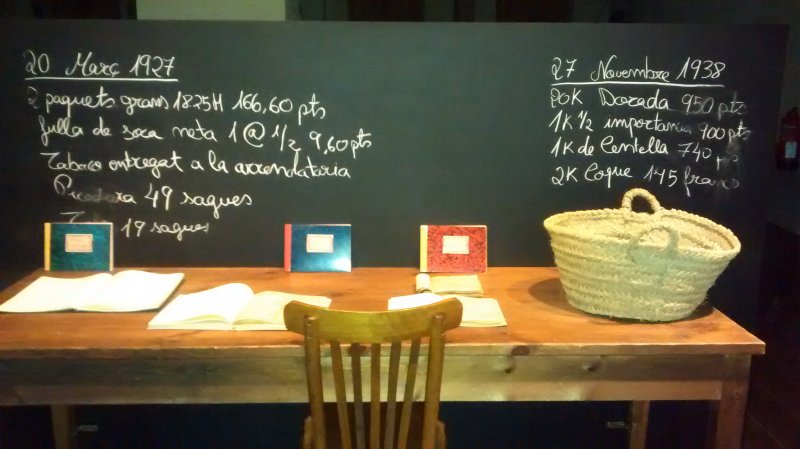 20 Març 1927
2 paquets grans 1825H 166,60 pts
fulla de soca neta 1 @ 1/2 9,60 pts
Tabaco entregat a la arrendataria
Picadura 49 saques
19 saques
27 Novembre 1938
Dorada 950 pts
1K 1/2 importancia 900 pts
1K de Centella 740
2K Coque 145 francs